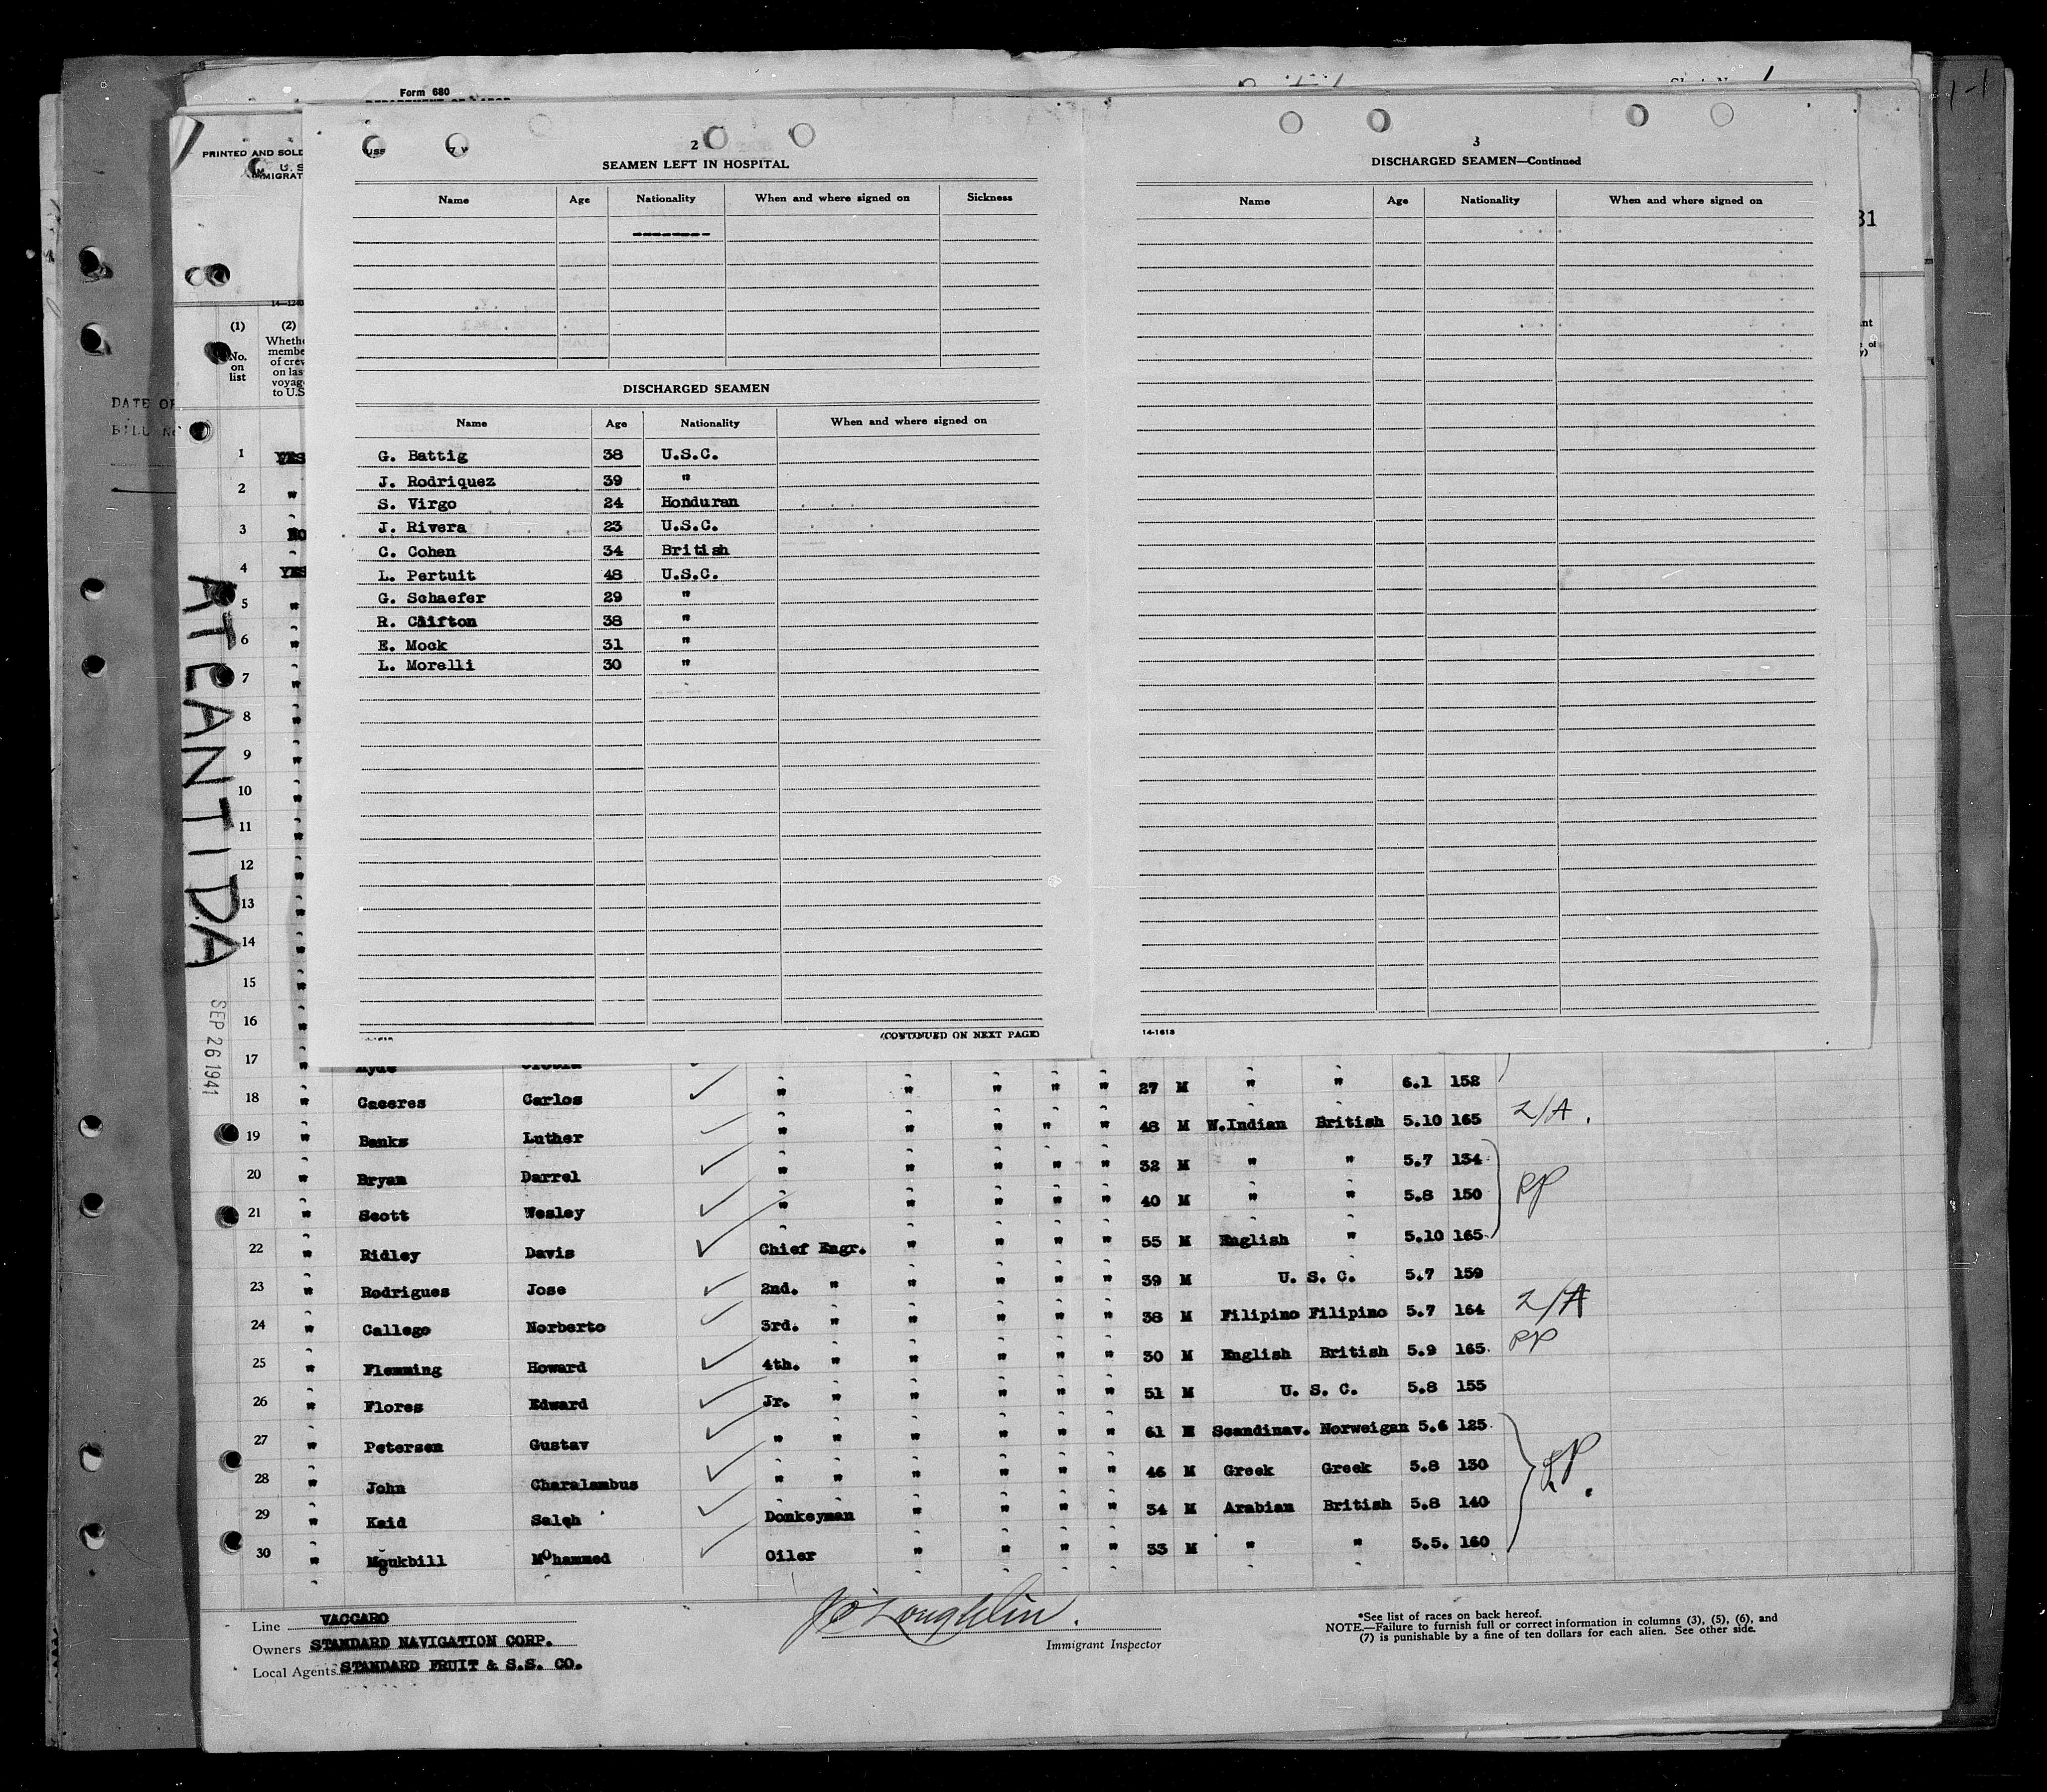 Form 680
1
1-1
PRINTED AND SOLD
U. S
IMMIGRAT
31
DATE OF
BILL No
ATLANTIDA
SEP 26 1941
2
SEAMEN LEFT IN HOSPITAL
Name Age Nationality When and where signed on Sickness
--------
DISCHARGED SEAMEN
Name Age Nationality When and where signed on
G. Battig 38 U.S.C.
J. Rodriquez 39 "
S. Virgo 24 Honduran
J. Rivera 23 U.S.C.
C. Cohen 34 British
L. Pertuit 48 U.S.C.
G. Schaefer 29 "
R. Clifton 38 "
E. Mock 31 "
L. Morelli 30 "
(CONTINUED ON NEXT PAGE)
3
DISCHARGED SEAMEN—Continued
Name Age Nationality When and where signed on
14-1613
(1) (2)
No. on list
Whethe
membe
of crew
on las
voyage
to U.S
1 YES
2 "
3 NO
4 YES
5 "
6 "
7 "
8 "
9 "
10 "
11 "
12 "
13 "
14 "
15 "
16 "
17 "
18 " Caceres Carlos " " " " " 27 M " " 6.1 152
19 " Banks Luther " " " " " 48 M W.Indian British 5.10 165 L/A.
20 " Bryan Darrel " " " " " 32 M " " 5.7 134
21 " Scott Wesley " " " " " 40 M " " 5.8 150 PP
22 " Ridley Davis Chief Engr. " " " " 55 M English " 5.10 165
23 " Rodrigues Jose 2nd. " " " " " 39 M U. S. C. 5.7 159
24 " Callego Norberto 3rd. " " " " " 38 M Filipino Filipino 5.7 164 L/A
25 " Flemming Howard 4th. " " " " " 30 M English British 5.9 165 PP
26 " Flores Edward Jr. " " " " " 51 M U. S. C. 5.8 155
27 " Petersen Gustav " " " " " " 61 M Scandinav. Norweigan 5.6 125
28 " John Charalambus " " " " " " 46 M Greek Greek 5.8 130 PP.
29 " Kaid Saleh Donkeyman " " " " 34 M Arabian British 5.8 140
30 " Moukbill Mohammed Oiler " " " " 33 M " " 5.5. 160
Line VACCARO
Owners STANDARD NAVIGATION CORP.
Local Agents STANDARD FRUIT & S.S. CO.
J O'Loughlin.
Immigrant Inspector
*See list of races on back hereof.
NOTE.—Failure to furnish full or correct information in columns (3), (5), (6), and
(7) is punishable by a fine of ten dollars for each alien. See other side.